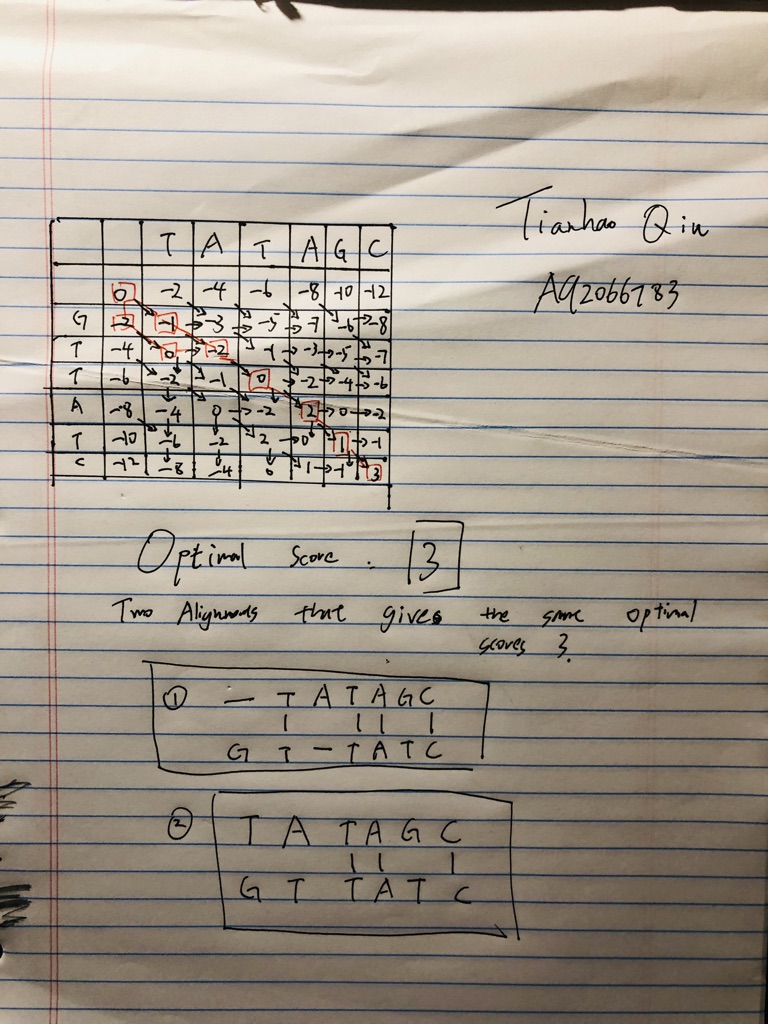 Tianhao Qin
A92066783
T A T A G C
0 -2 -4 -6 -8 -10 -12
G -2 -1 -3 -5 -7 -6 -8
T -4 0 -2 -1 -3 -5 -7
T -6 -2 -1 0 -2 -4 -6
A -8 -4 0 -2 2 0 -2
T -10 -6 -2 2 0 1 -1
C -12 -8 -4 0 1 -1 3
Optimal Score : 3
Two Alignments that gives the same optimal
scores 3.
① — T A T A G C
G T — T A T C
② T A T A G C
G T T A T C